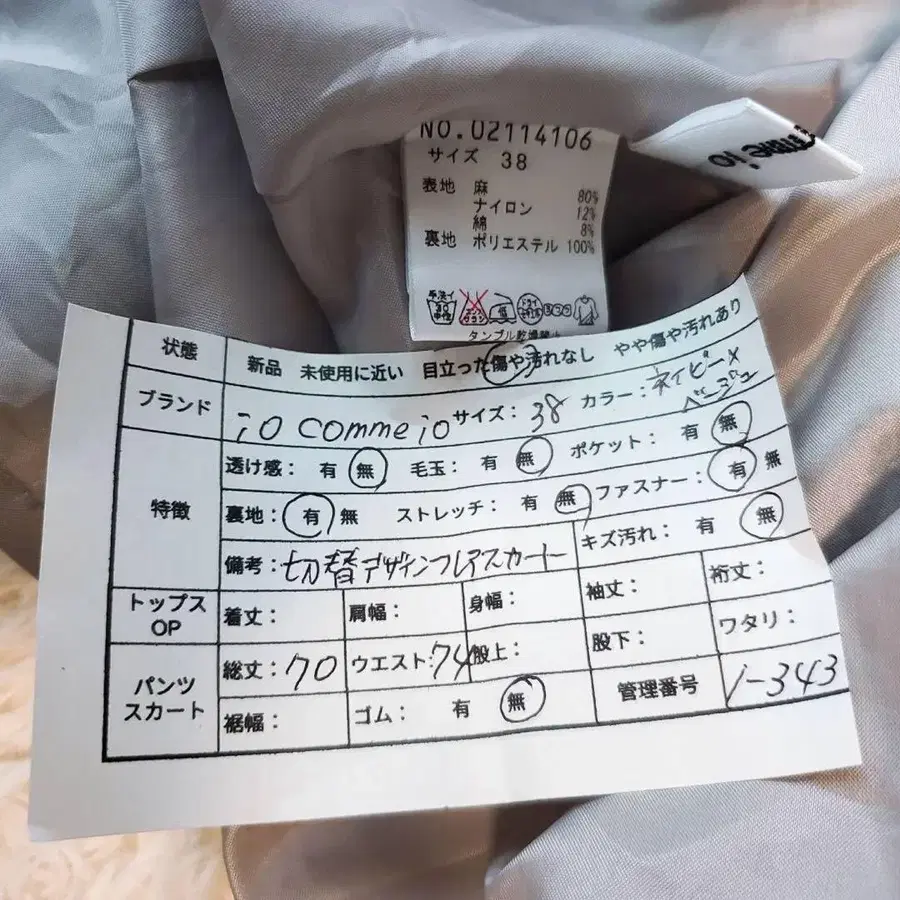 NO.02114106
サイズ 38
表地 麻 80%
ナイロン 12%
綿 8%
裏地 ポリエステル 100%
mme io
タンブル乾燥禁止
状態 新品 未使用に近い 目立った傷や汚れなし やや傷や汚れあり
ブランド io comme io サイズ: 38 カラー: ネイビー×ベージュ
特徴
透け感: 有 無 毛玉: 有 無 ポケット: 有 無
裏地: 有 無 ストレッチ: 有 無 ファスナー: 有 無
備考: 切替デザインフレアスカート キズ汚れ: 有 無
トップス OP 着丈: 肩幅: 身幅: 袖丈: 裄丈:
パンツ スカート
総丈: 70 ウエスト: 74 股上: 股下: ワタリ:
裾幅: ゴム: 有 無 管理番号 i-343